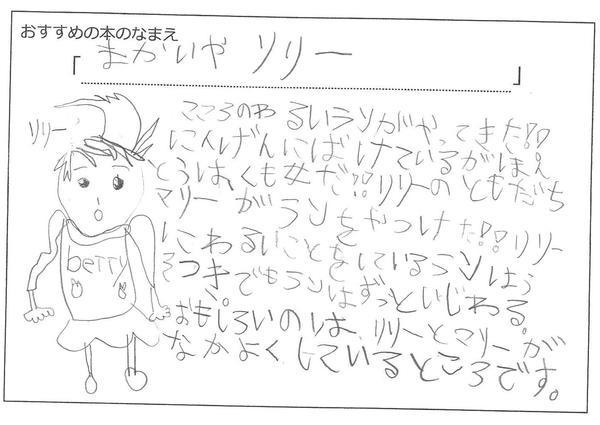 おすすめの本のなまえ
「まかいや リリー」
リリー
こころのわるいランがやってきた!!
にんげんにばけているがほん
とうは、くも女だ!!リリーのともだち
マリーがランをやっつけた!!リリー
にわるいことをしているランはう
そつき。でもランはずっといじわる。
おもしろいのは、リリーとマリーが
なかよくしているところです。
betty